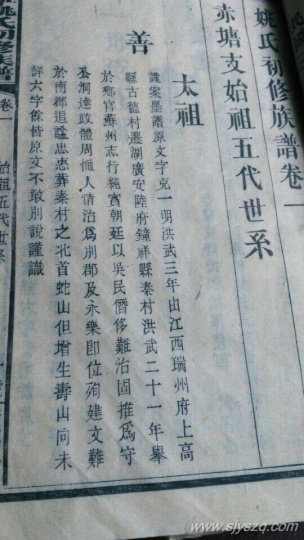 姚氏初修族譜卷一
赤塘支始祖五代世系
太祖
善
謹案墨譜原文字克一明洪武三年由江西瑞州府上高
縣古德村遷湖廣安陸府鐘祥縣秦村洪武二十一年舉
於鄉官蘇州志行純實朝廷以吳民僭侈難治固推爲守
至洞達政體周恤人情治爲列郡及永樂卽位殉建文難
於南郡追謚忠惠葬秦村之北首蛇山但增生壽山向未
詳六字餘皆原文不敢別說謹識
姚氏初修族譜
卷一
始祖五代世系
www.sjyszq.com